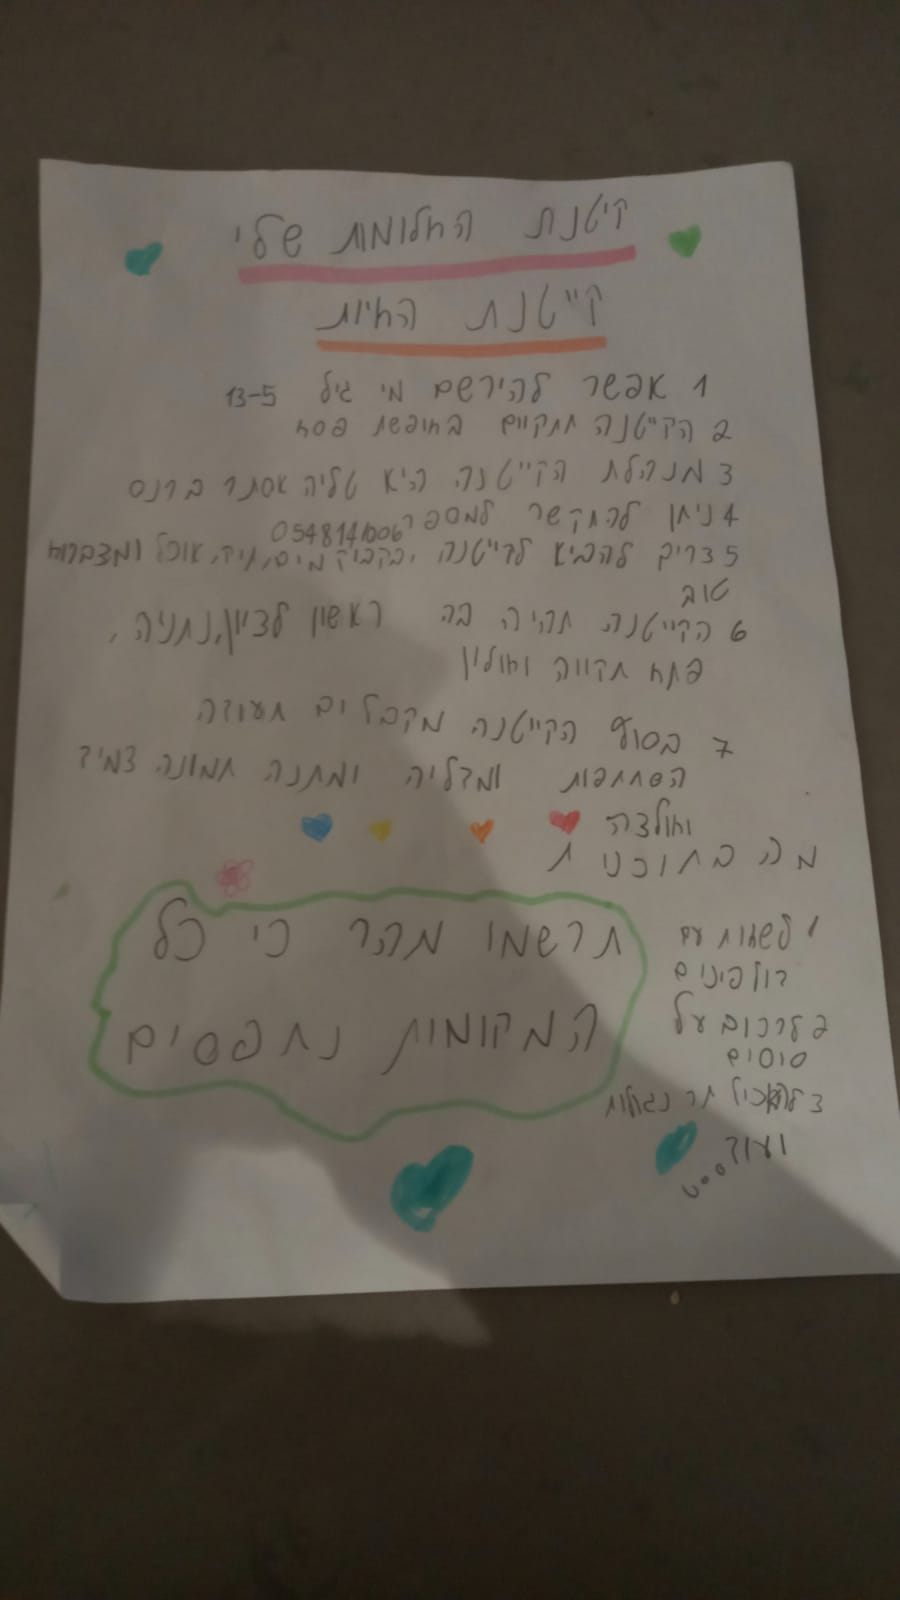 קיטנת החלומות שלי
קייטנת החיות
1 אפשר להירשם מי גיל 13-5
2 הקייטנה תתקיים בחופשת פסח
3 מנהלת הקייטנה היא טליה אסתר ברנס
4 ניתן להתקשר למספר
5 צריך להביא לקייטנה, בקבוק מים, תיק, אוכל ומצברוח
טוב
6 הקייטנה תהיה בה ראשון לציון, נתניה,
פתח תקווה וחולון
7 בסוף הקייטנה מקבלים תעודה
ומדליה ומתנה תמונה צמיד
וחולצה
מה בתוכנית
תרשמו מהר כי כל
המקומות נתפסים
1 לשחות עם
דולפינים
2 לרכוב על
סוסים
3 להאכיל תר נגולות
ועוד...